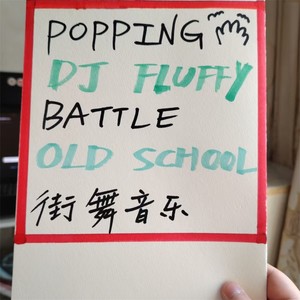 POPPING
DJ FLUFFY
BATTLE
OLD SCHOOL
街舞音乐